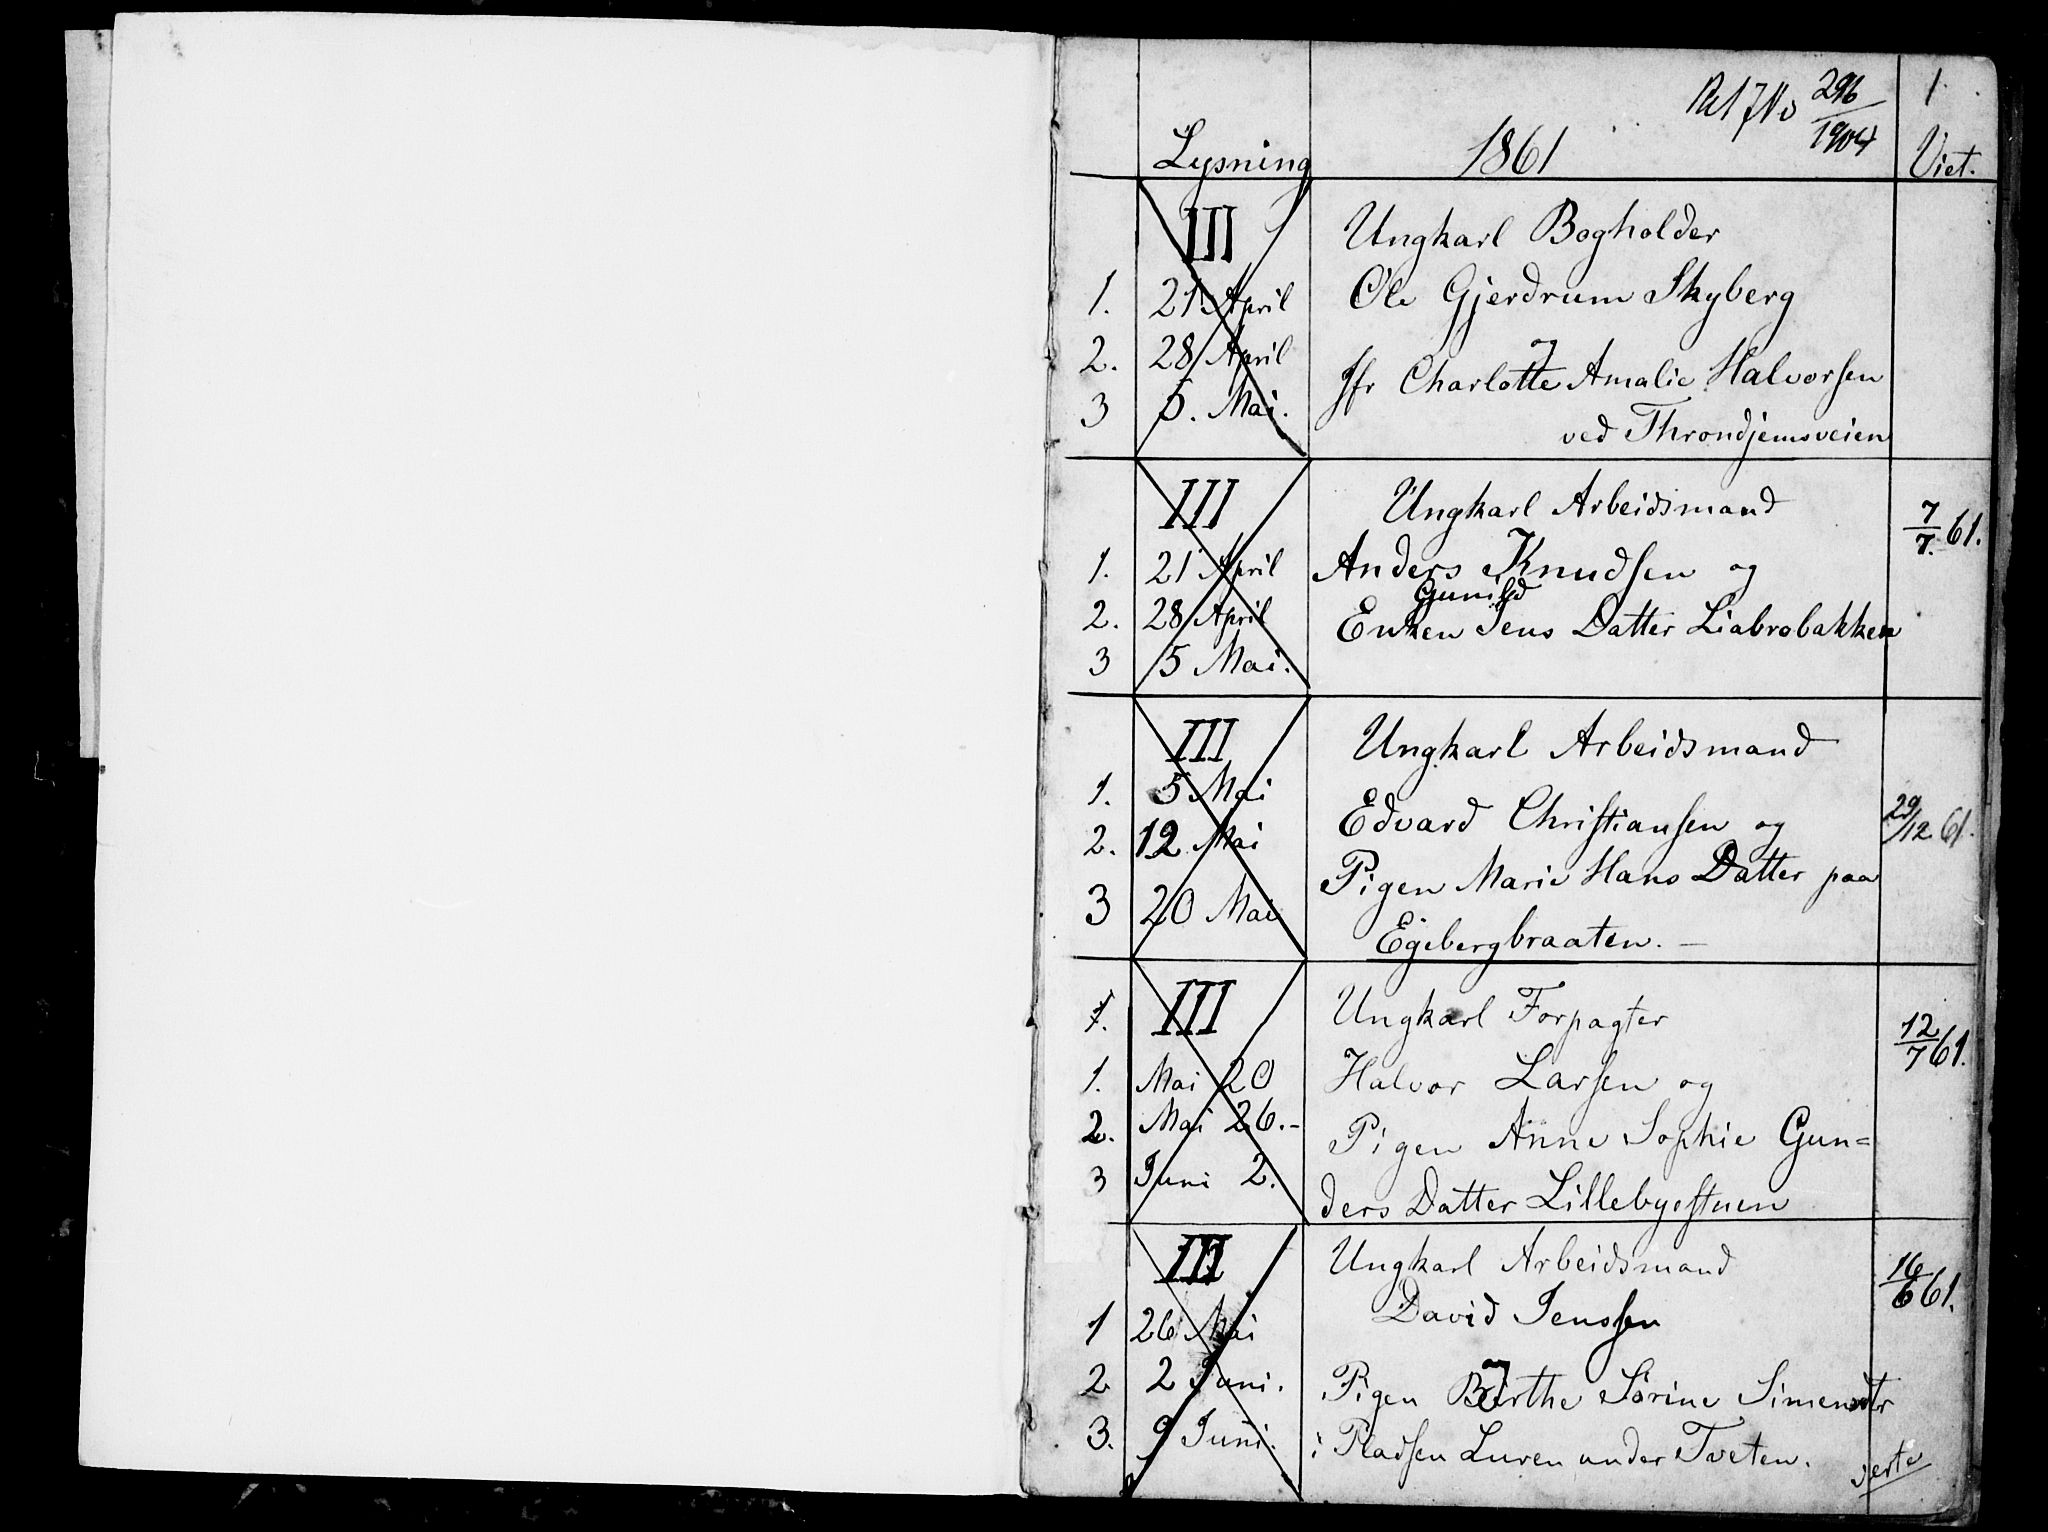 296
1904
1
Lysning 1861 Viet.
III Ungkarl Bogholder
1. 21 April Ole Gjerdrum Skyberg
2. 28 April og
Jfr Charlotte Amalie Halvorsen
3 5. Mai. ved Throndjemsveien
III Ungkarl Arbeidsmand 7/7. 61.
1. 21 April Anders Knudsen og
Gunild
2. 28 April Enken Jens Datter Liabrobakken
3 5 Mai.
III Ungkarl Arbeidsmand
1. 5 Mai Edvard Christiansen og 29/12 61.
2. 12 Mai
Pigen Marie Hans Datter paa
3 20 Mai
Egebergbraaten. —
1. III Ungkarl Forpagter 12/7 61.
1. Mai 20 Halvor Larsen og
2. Mai 26.- Pigen Anne Sophie Gun=
3 Juni 2. ders Datter Lillebyestuen
III Ungkarl Arbeidsmand 16/6 61.
1 26 Mai David Jenssen
og
2 2 Juni. Pigen Birthe Sörine Simensdtr
3. 9 Juni. i Pladsen Luren under Tveten.
verte